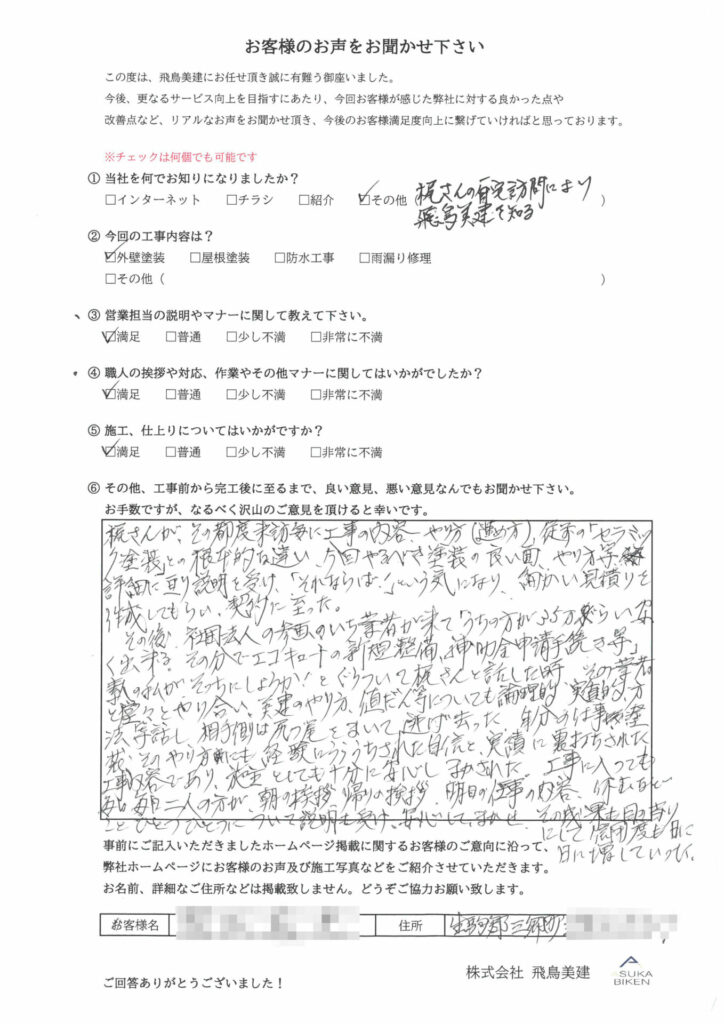 お客様のお声をお聞かせ下さい
この度は、飛鳥美建にお任せ頂き誠に有難う御座いました。
今後、更なるサービス向上を目指すにあたり、今回お客様が感じた弊社に対する良かった点や
改善点など、リアルなお声をお聞かせ頂き、今後のお客様満足度向上に繋げていければと思っております。
※チェックは何個でも可能です
① 当社を何でお知りになりましたか？
□インターネット □チラシ □紹介 ☑その他（梶さんの自宅訪問により
飛鳥美建を知る ）
② 今回の工事内容は？
☑外壁塗装 □屋根塗装 □防水工事 □雨漏り修理
□その他（ ）
③ 営業担当の説明やマナーに関して教えて下さい。
☑満足 □普通 □少し不満 □非常に不満
④ 職人の挨拶や対応、作業やその他マナーに関してはいかがでしたか？
☑満足 □普通 □少し不満 □非常に不満
⑤ 施工、仕上りについてはいかがですか？
☑満足 □普通 □少し不満 □非常に不満
⑥ その他、工事前から完工後に至るまで、良い意見、悪い意見なんでもお聞かせ下さい。
お手数ですが、なるべく沢山のご意見を頂けると幸いです。
梶さんが、その都度来訪毎に工事の内容、やり方（進め方）、従来の「セラミッ
ク塗装」との根本的な違い、今回やるべき塗装の良い面、やり方等
詳細に亘り説明を受け、「それならば！」という気になり、細かい見積りを
作成してもらい、契約に至った。
その後、社団法人の方面のいち業者が来て「うちの方が35万ぐらい安
くします。その分でエコキュートの新規整備、補助金申請手続き等」
私がそっちにしようか！とぐらついて梶さんと話した時、その業者
と堂々とやり合い、美建のやり方、値だん等についても論理的、実直的
法等話し、相手側は尻っ尾をまいて逃げ去った。自分の仕事
そのやり方にも経験にうらうちされた自信と、実績に裏打ちされた
工事内容であり、施主としても十分に安心しまかされた。工事に入っても
毎日二人の方が、朝の挨拶、帰りの挨拶、明日の仕事の内容、休むなど
ことひとつひとつについて説明も受け、安心して、まかせ、その成果も目の当り
にして信用度も日に
日に増していった。
事前にご記入いただきましたホームページ掲載に関するお客様のご意向に沿って、
弊社ホームページにお客様のお声及び施工写真などをご紹介させていただきます。
お名前、詳細なご住所などは掲載致しません。どうぞご協力お願い致します。
お客様名 住所 生駒郡三郷町
株式会社 飛鳥美建
ASUKA
BIKEN
ご回答ありがとうございました！